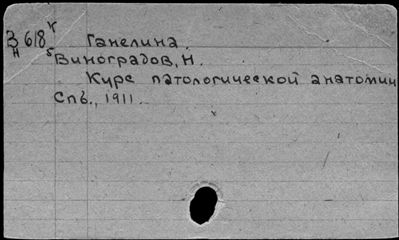 З 618 К Ганелина.
Н 5 Виноградов, Н.
Курс патологической анатомии
Спб., 1911.